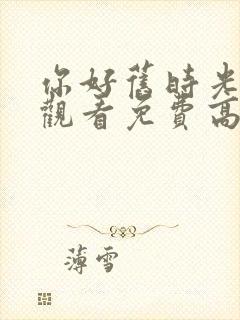 你好舊時光
觀看免費高
薄雪